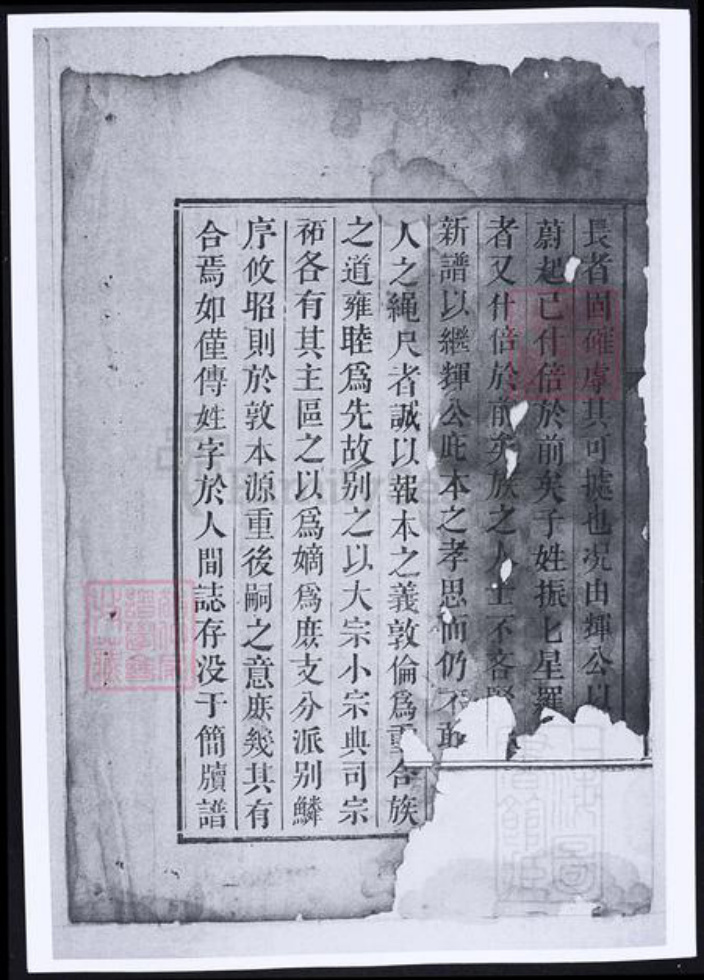 長者固確虖其可據也况由輝公以
蔚起已什倍於前矣子姓振匕星羅
者又什倍於前矣族之人士不吝
新譜以繼輝公此本之孝思而仍不敢
人之繩尺者誠以報本之義敦倫爲重合族
之道雍睦爲先故别之以大宗小宗典司宗
祏各有其主區之以爲嫡爲庻支分派别鱗
序攸昭則於敦本源重後嗣之意庻幾其有
合焉如僅傳姓字於人間誌存没于簡牘譜